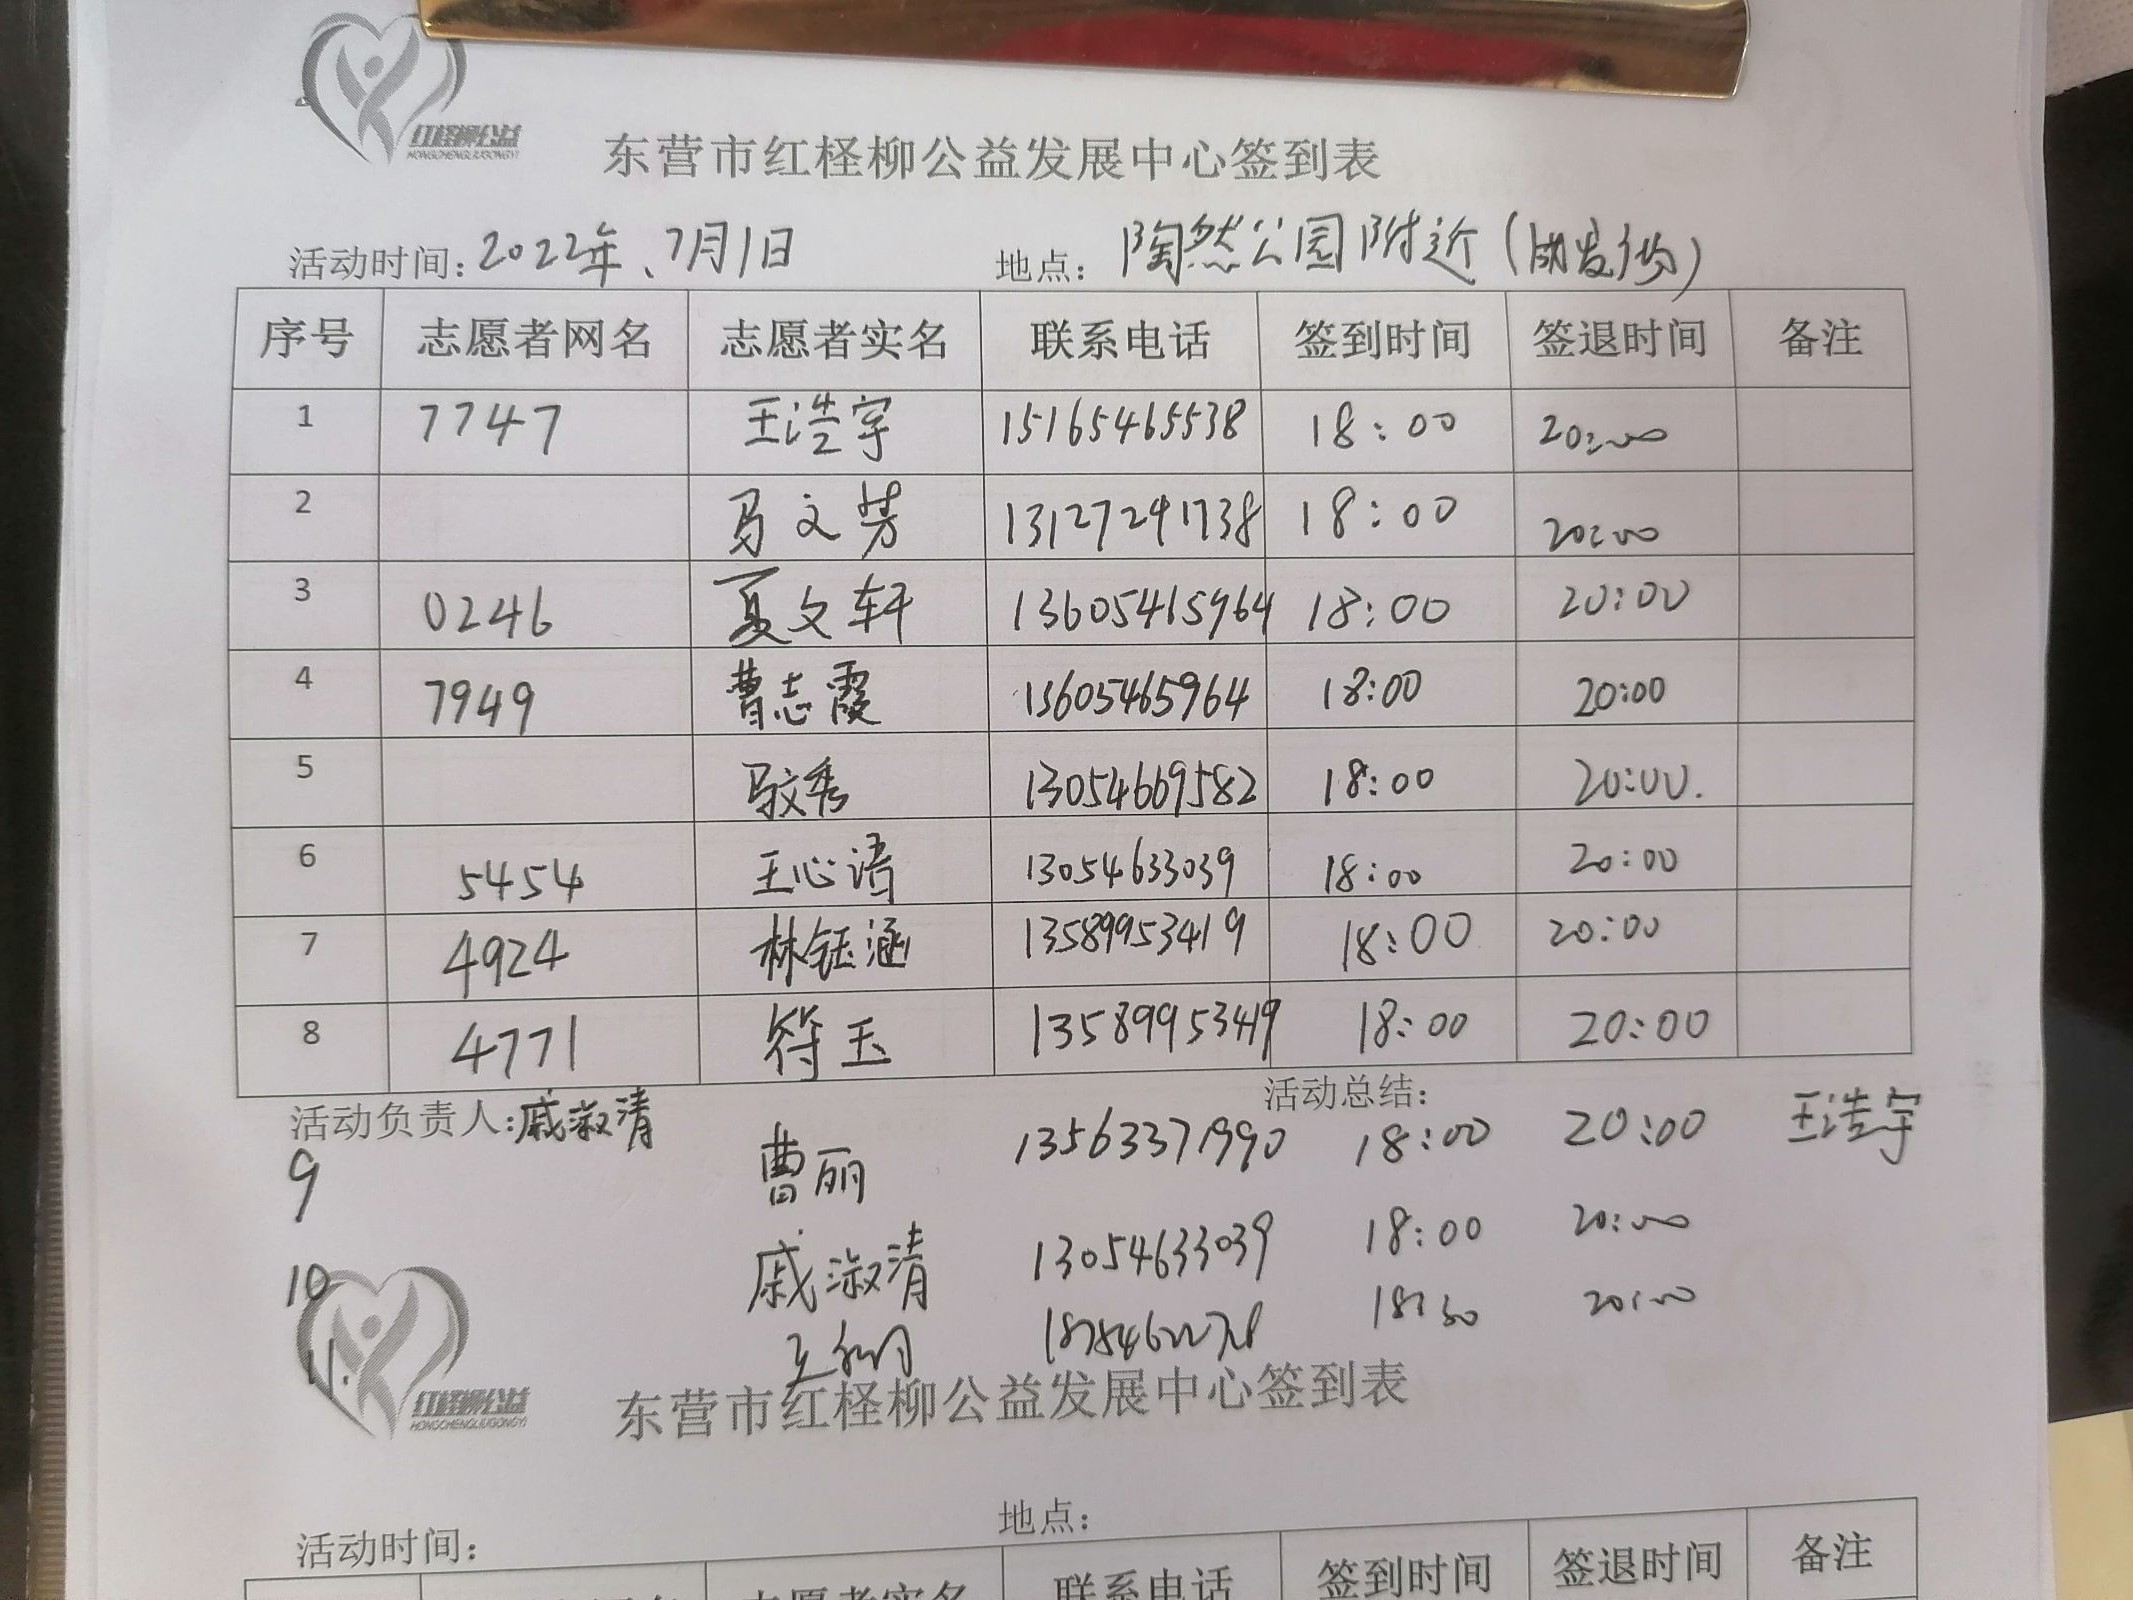 红柽柳公益
HONGCHENGLIUGONGYI
东营市红柽柳公益发展中心签到表
活动时间：2022年、7月1日 地点：陶然公园附近（
序号 志愿者网名 志愿者实名 联系电话 签到时间 签退时间 备注
1 7747 王浩宇 15165465538 18:00 20:00
2 马文芳 13127291738 18:00 20:00
3 0246 夏文轩 13605465964 18:00 20:00
4 7949 曹志霞 13605465964 18:00 20:00
5 马文秀 13054669582 18:00 20:00.
6 5454 王心语 13054633039 18:00 20:00
7 4924 林钰涵 13589953419 18:00 20:00
8 4771 符玉 13589953419 18:00 20:00
活动负责人:戚淑清 活动总结：王浩宇
9 曹丽 13563371990 18:00 20:00
10 戚淑清 13054633039 18:00 20:00
11. 18:30 20:00
红柽柳公益
HONGCHENGLIUGONGYI
东营市红柽柳公益发展中心签到表
活动时间： 地点：
志愿者实名 联系电话 签到时间 签退时间 备注